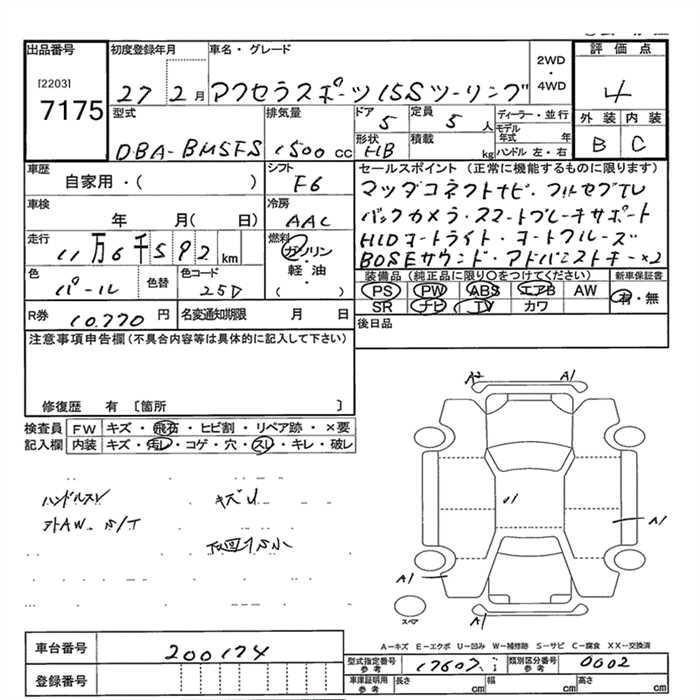 出品番号 初度登録年月 車名・グレード 2WD・4WD 評価点
[2203]
7175 27 2月 アクセラスポーツ 15Sツーリング 4
型式 排気量 ドア 5 定員 5人 ディーラー・並行 外装 内装
DBA-BM5FS 1500cc 形状 HB 積載 kg モデル年式 年 ハンドル 左・右 B C
車歴 自家用・( ) シフト F6 セールスポイント (正常に機能するものに限ります)
マツダコネクトナビ・フルセグTV
車検 年 月( 日) 冷房 AAC バックカメラ・スマートブレーキサポート
走行 11万6千592km 燃料 ガソリン・軽油 ( ) HIDオートライト・オートクルーズ
BOSEサウンド・アドバンストキー×2
色 パール 色替 色コード 25D 装備品 (純正品に限り○をつけてください) 新車保証書
PS PW ABS エアB AW 有・無
SR ナビ TV カワ
R券 10.770円 名変通知期限 月 日 後日品
注意事項申告欄(不具合内容等は具体的に記入して下さい)
修復歴 有 〔箇所 〕
検査員 FW キズ・飛石・ヒビ割・リペア跡・×要
記入欄 内装 キズ・汚レ・コゲ・穴・スレ・キレ・破レ
ハンドルスレ キズU
外AW. S/T
A2 A1
U1
A1
A1
スペア A1
A-キズ E-エクボ U-凹み W-補修跡 S-サビ C-腐食 XX-交換済
車台番号 200174
型式指定番号 参考 17607 類別区分番号 参考 0002
登録番号 車庫証明用 参考 長さ cm 幅 cm 高さ cm